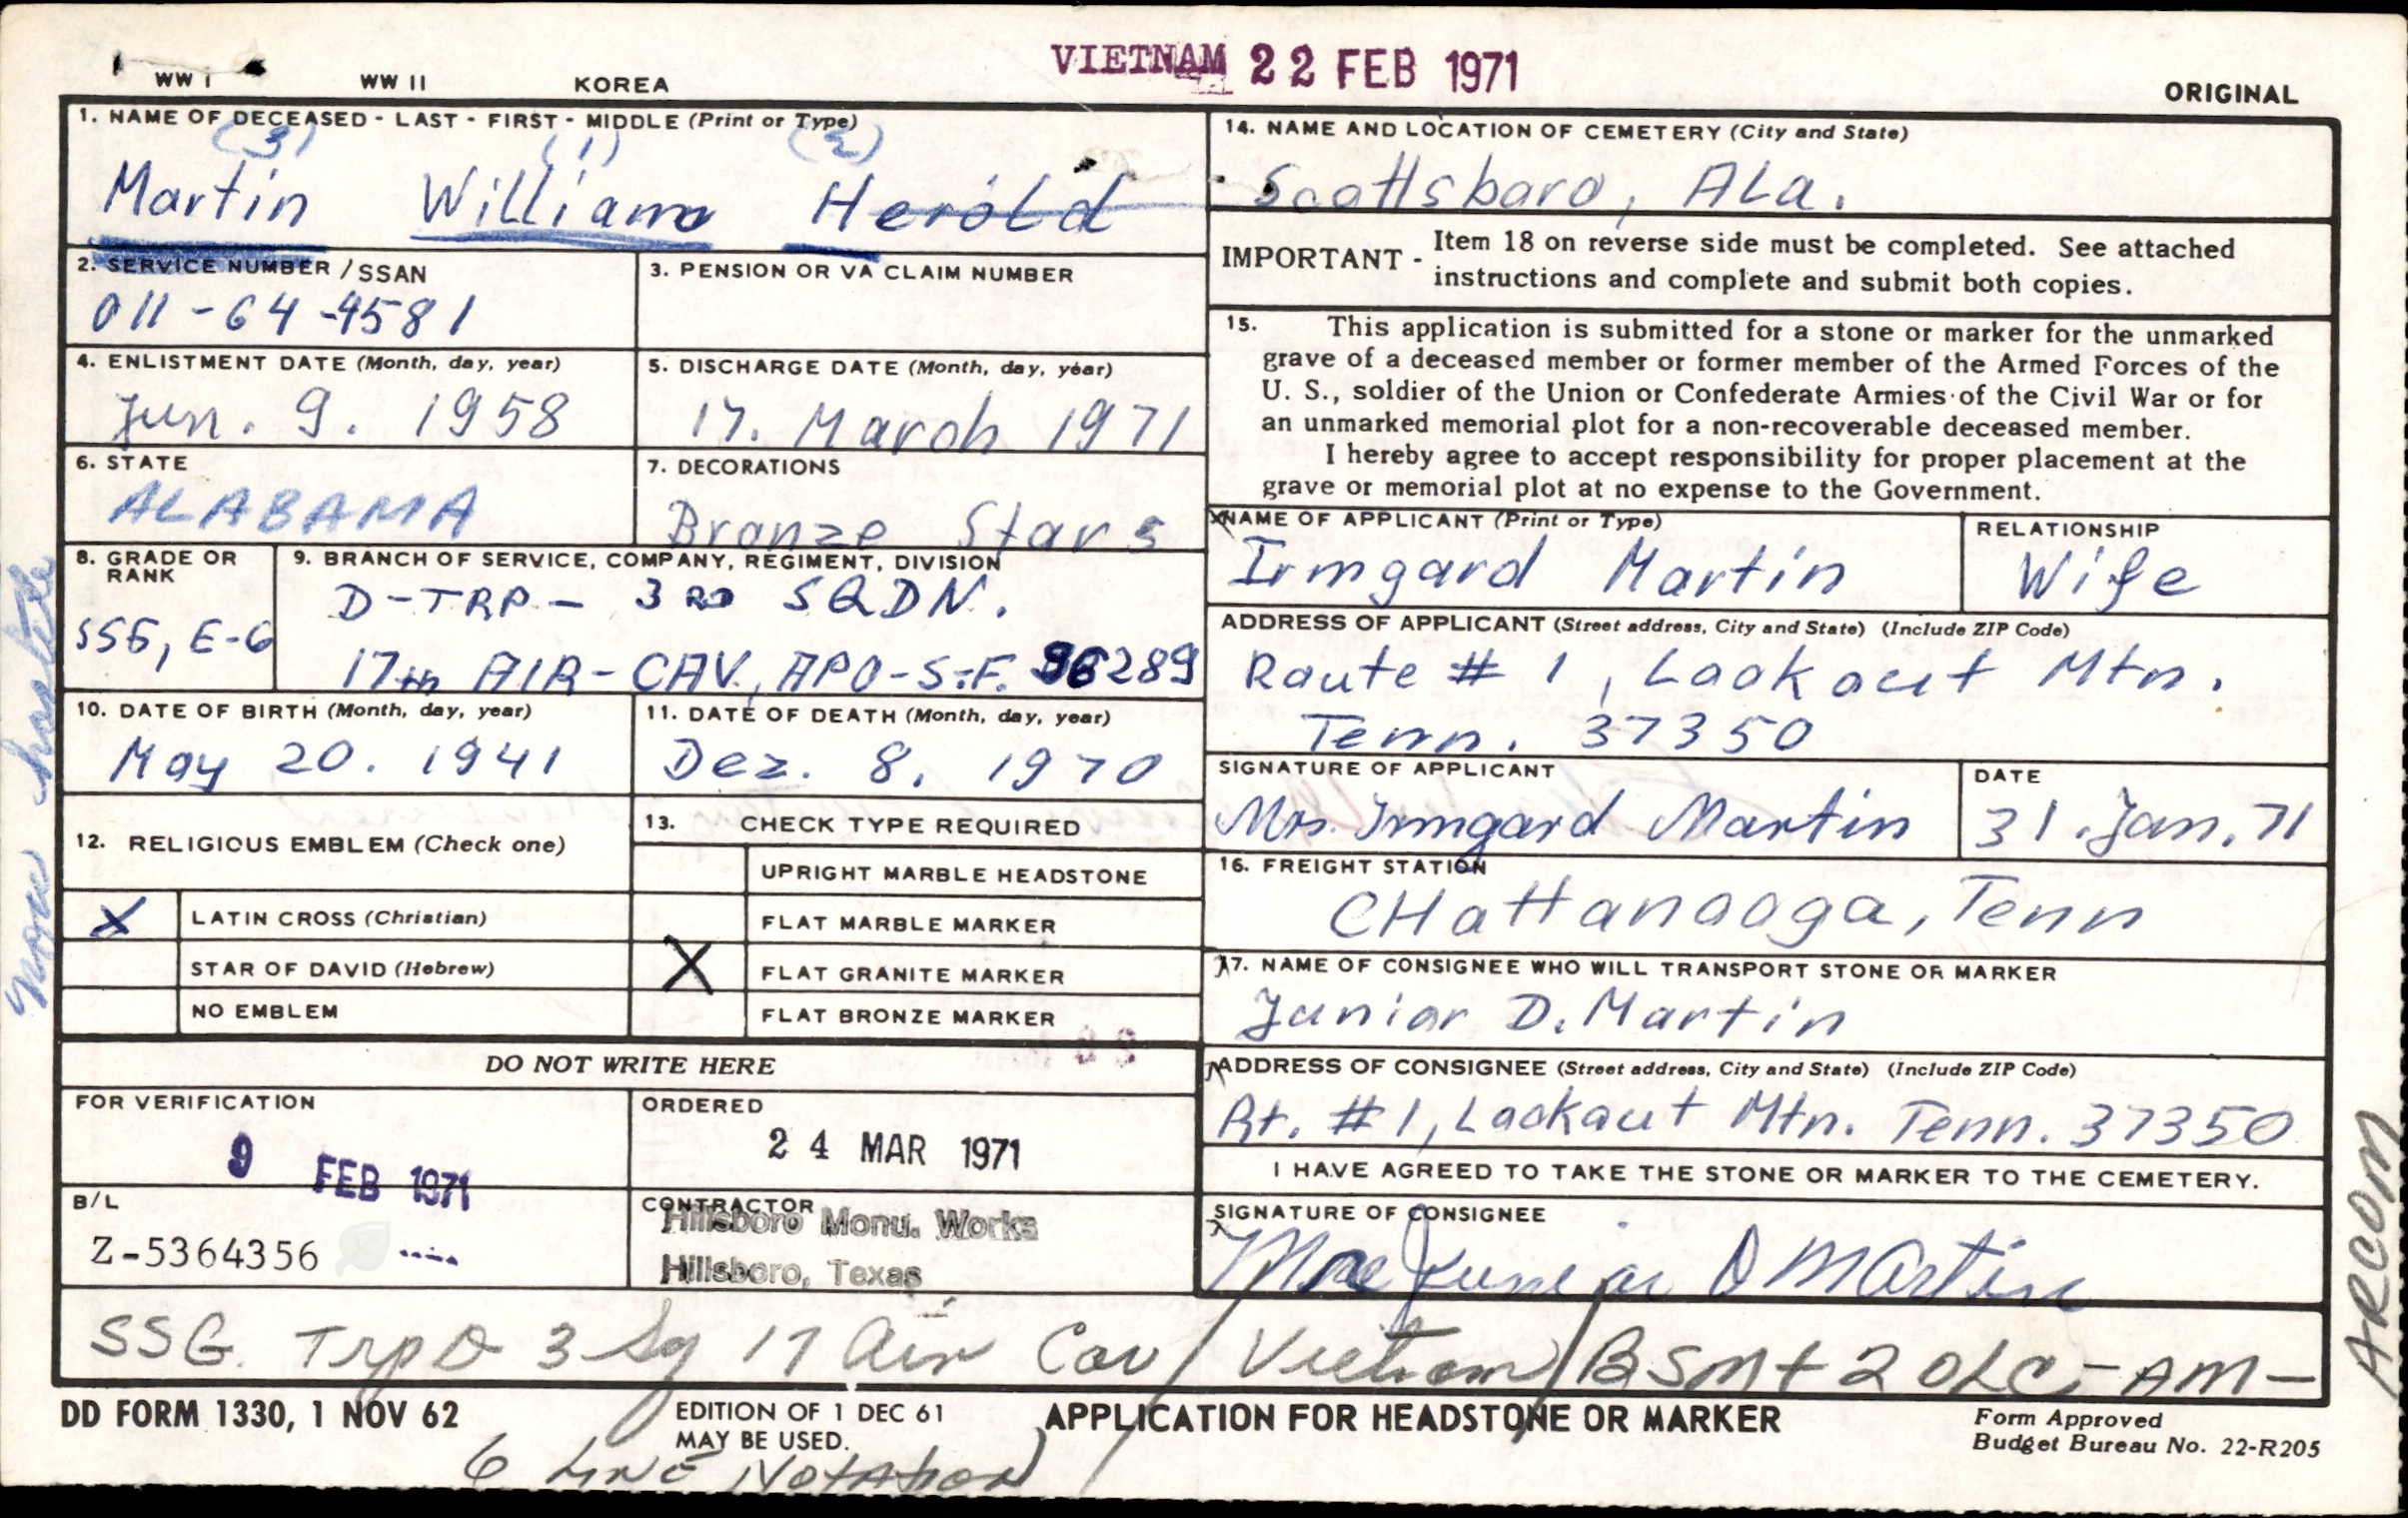 WW I WW II KOREA VIETNAM 22 FEB 1971 ORIGINAL
1. NAME OF DECEASED - LAST - FIRST - MIDDLE (Print or Type)
(3) (1) (2)
Martin William Herold
2. SERVICE NUMBER / SSAN
011-64-4581
3. PENSION OR VA CLAIM NUMBER
4. ENLISTMENT DATE (Month, day, year)
Jun. 9. 1958
5. DISCHARGE DATE (Month, day, year)
17. March 1971
6. STATE
ALABAMA
7. DECORATIONS
Bronze Stars
8. GRADE OR
RANK
SSG, E-6
9. BRANCH OF SERVICE, COMPANY, REGIMENT, DIVISION
D-TRP- 3RD SQDN.
17th AIR-CAV, APO-S.F. 96289
10. DATE OF BIRTH (Month, day, year)
May 20. 1941
11. DATE OF DEATH (Month, day, year)
Dez. 8. 1970
12. RELIGIOUS EMBLEM (Check one)
X LATIN CROSS (Christian)
STAR OF DAVID (Hebrew)
NO EMBLEM
13. CHECK TYPE REQUIRED
UPRIGHT MARBLE HEADSTONE
FLAT MARBLE MARKER
X FLAT GRANITE MARKER
FLAT BRONZE MARKER
DO NOT WRITE HERE
FOR VERIFICATION
9 FEB 1971
ORDERED
24 MAR 1971
B/L
Z-5364356
CONTRACTOR
Hillsboro Monu. Works
Hillsboro, Texas
14. NAME AND LOCATION OF CEMETERY (City and State)
Scottsboro, ALa.
IMPORTANT - Item 18 on reverse side must be completed. See attached
instructions and complete and submit both copies.
15. This application is submitted for a stone or marker for the unmarked
grave of a deceased member or former member of the Armed Forces of the
U. S., soldier of the Union or Confederate Armies of the Civil War or for
an unmarked memorial plot for a non-recoverable deceased member.
I hereby agree to accept responsibility for proper placement at the
grave or memorial plot at no expense to the Government.
NAME OF APPLICANT (Print or Type)
Irmgard Martin
RELATIONSHIP
Wife
ADDRESS OF APPLICANT (Street address, City and State) (Include ZIP Code)
Route # 1, Lookout Mtn.
Tenn. 37350
SIGNATURE OF APPLICANT
Mrs. Irmgard Martin
DATE
31. Jan. 71
16. FREIGHT STATION
CHattanooga, Tenn
17. NAME OF CONSIGNEE WHO WILL TRANSPORT STONE OR MARKER
Junior D. Martin
ADDRESS OF CONSIGNEE (Street address, City and State) (Include ZIP Code)
Rt. #1, Lookout Mtn. Tenn. 37350
I HAVE AGREED TO TAKE THE STONE OR MARKER TO THE CEMETERY.
SIGNATURE OF CONSIGNEE
Junior D Martin
SSG Trp D 3 Sq 17 Air Cav / Vietnam / BSM + 2 OLC - AM -
ARCOM
Non hostile
DD FORM 1330, 1 NOV 62
EDITION OF 1 DEC 61
MAY BE USED.
APPLICATION FOR HEADSTONE OR MARKER
Form Approved
Budget Bureau No. 22-R205
6 LINE NOTATION